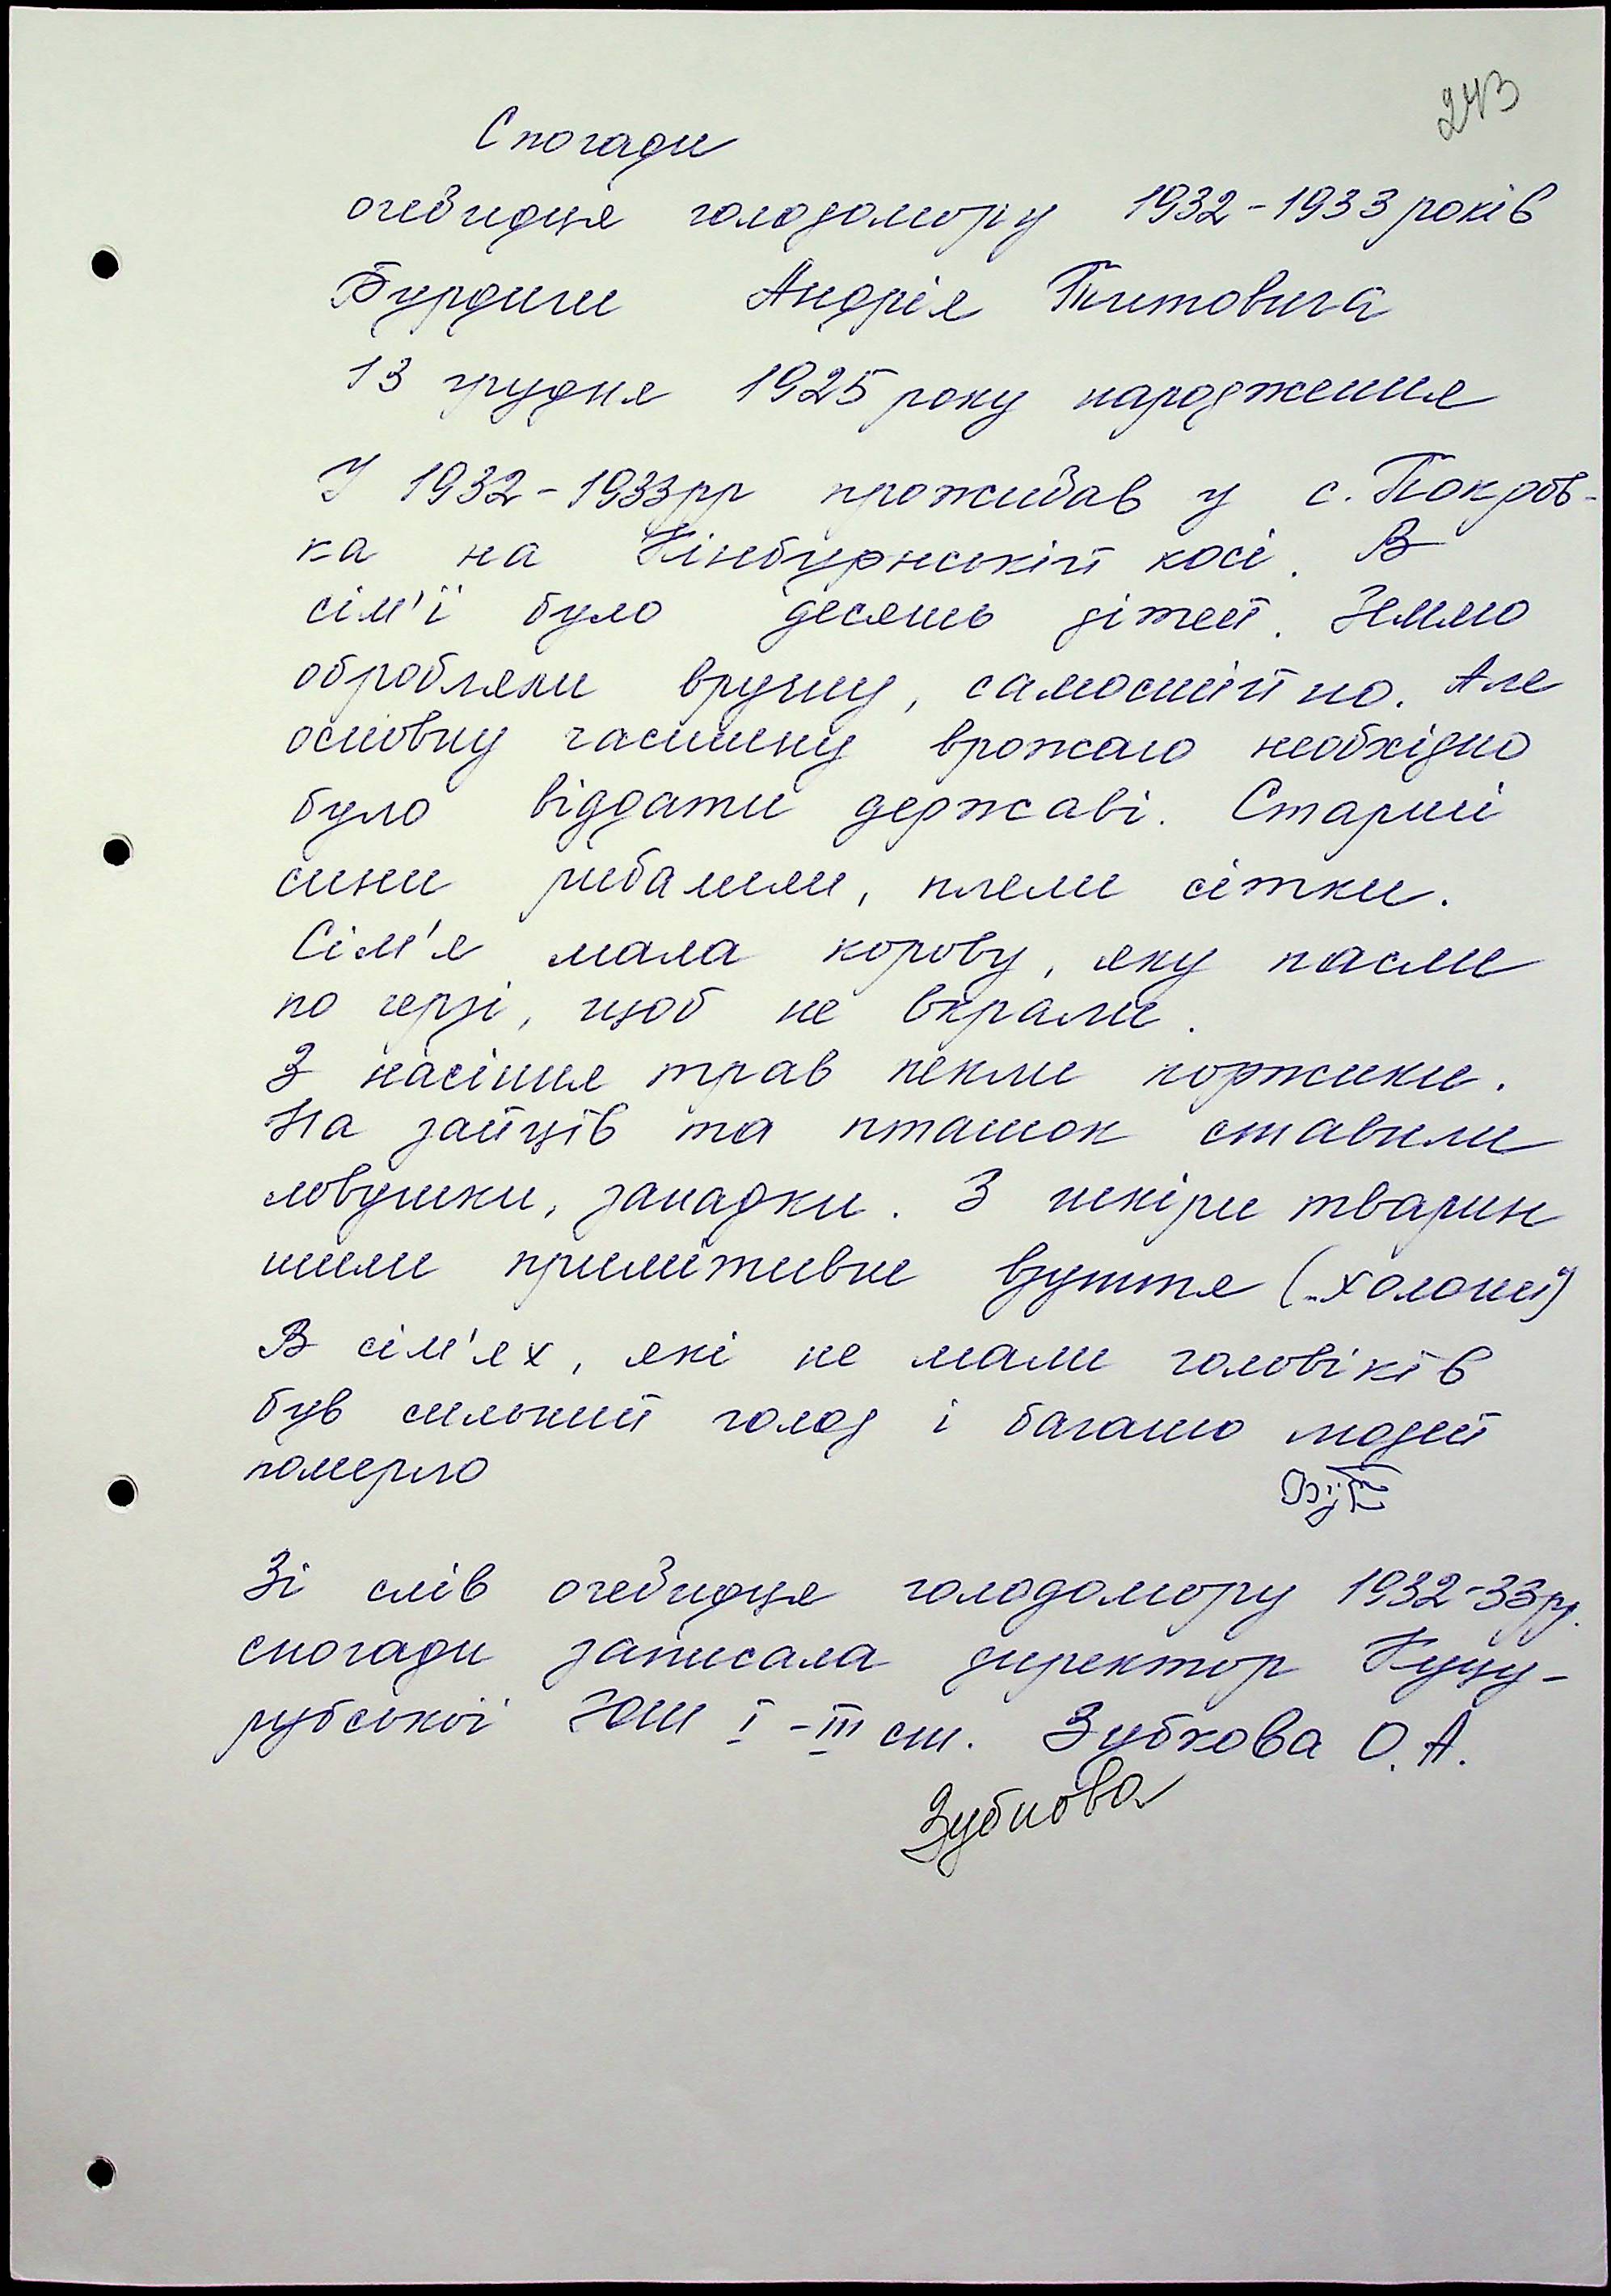 243
Спогади
очевидця голодомору 1932-1933 років
Бурдиги Андрія Титовича
13 грудня 1925 року народження
У 1932-1933рр проживав у с. Покров-
ка на Кінбурнській косі. В
сім'ї було десять дітей. Землю
обробляли вручну, самостійно. Але
основну частину врожаю необхідно
було віддати державі. Старші
сини рибалили, плели сітки.
Сім'я мала корову, яку пасли
по черзі, щоб не вкрали.
З насіння трав пекли коржики.
На зайців та пташок ставили
ловушки, западки. З шкіри тварин
шили примітивне взуття („холоші")
В сім'ях, які не мали чоловіків
був сильний голод і багато людей
померло
Зі слів очевидця голодомору 1932-33рр.
спогади записала директор Куцу-
рубської ЗОШ I-III ст. Зубкова О.А.
Зубкова